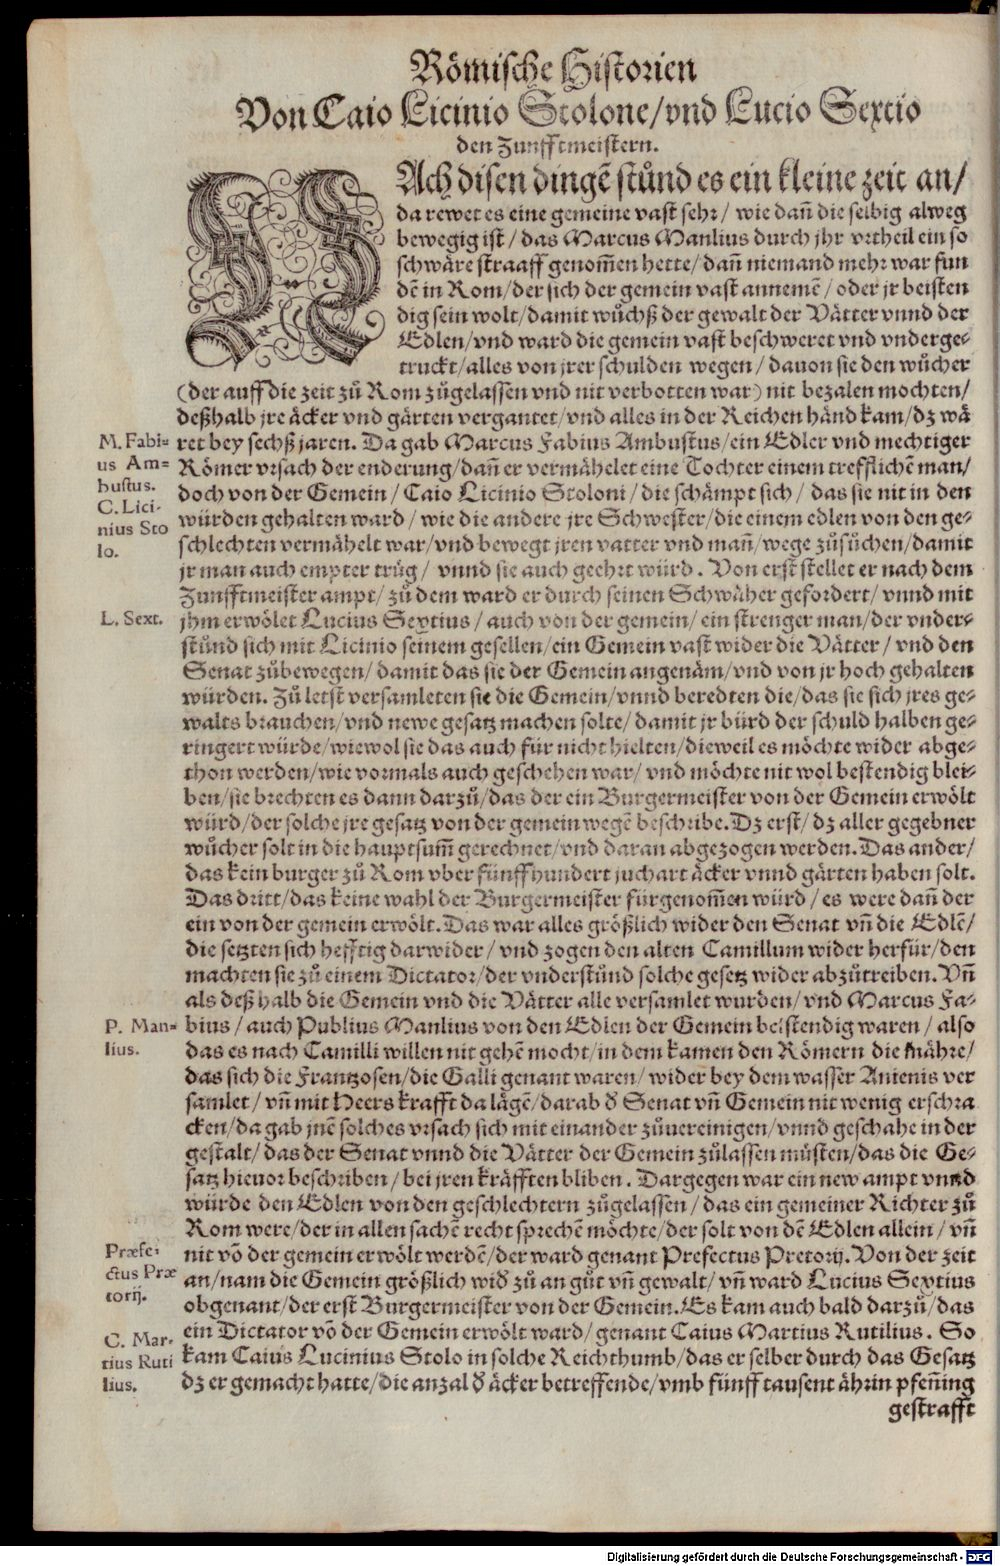 Römische Historien
Von Caio Licinio Stolone/vnd Lucio Sextio
den Zunfftmeistern.
NAch disen dingē stůnd es ein kleine zeit an/
da rewet es eine gemeine vast sehr/ wie dañ die selbig alweg
bewegig ist/ das Marcus Manlius durch jhr vrtheil ein so
schwäre straaff genom̃en hette/ dañ niemand mehr war fun
dē in Rom/ der sich der gemein vast annemē/ oder jr beisten
dig sein wolt/ damit wůchß der gewalt der Vätter vnnd der
Edlen/ vnd ward die gemein vast beschweret vnd vnderge-
truckt/ alles von jrer schulden wegen/ dauon sie den wůcher
(der auff die zeit zů Rom zůgelassen vnd nit verbotten war) nit bezalen mochten/
deßhalb jre äcker vnd gärten vergantet/ vnd alles in der Reichen händ kam/ dz wä
M. Fabi-
us Am-
bustus.
C. Lici-
nius Sto
lo.
ret bey sechß jaren. Da gab Marcus Fabius Ambustus/ ein Edler vnd mechtiger
Römer vrsach der enderung/ dañ er vermähelet eine Tochter einem trefflichē man/
doch von der Gemein/ Caio Licinio Stoloni/ die schämpt sich/ das sie nit in den
würden gehalten ward/ wie die andere jre Schwester/ die einem edlen von den ge-
schlechten vermähelt war/ vnd bewegt jren vatter vnd mañ/ wege zůsůchen/ damit
jr man auch empter trüg/ vnnd sie auch geehrt würd. Von erst stellet er nach dem
Zunfftmeister ampt/ zů dem ward er durch seinen Schwäher gefordert/ vnnd mit
L. Sext.
jhm erwölet Lucius Sextius/ auch von der gemein/ ein strenger man/ der vnder-
stůnd sich mit Licinio seinem gesellen/ ein Gemein vast wider die Vätter/ vnd den
Senat zůbewegen/ damit das sie der Gemein angenäm/ vnd von jr hoch gehalten
würden. Zů letst versamleten sie die Gemein/ vnnd beredten die/ das sie sich jres ge-
walts brauchen/ vnd newe gesatz machen solte/ damit jr bürd der schuld halben ge-
ringert würde/ wiewol sie das auch für nicht hielten/ dieweil es möchte wider abge-
thon werden/ wie vormals auch geschehen war/ vnd möchte nit wol bestendig blei-
ben/ sie brechten es dann darzů/ das der ein Burgermeister von der Gemein erwölt
würd/ der solche jre gesatz von der gemein wegē beschribe. Dz erst/ dz aller gegebner
wůcher solt in die hauptsum̃ gerechnet/ vnd daran abgezogen werden. Das ander/
das kein burger zů Rom vber fünffhundert juchart äcker vnnd gärten haben solt.
Das dritt/ das keine wahl der Burgermeister fürgenom̃en würd/ es were dañ der
ein von der gemein erwölt. Das war alles größlich wider den Senat vñ die Edlē/
die setzten sich hefftig darwider/ vnd zogen den alten Camillum wider herfür/ den
machten sie zů einem Dictator/ der vnderstůnd solche gesetz wider abzůtreiben. Vñ
als deßhalb die Gemein vnd die Vätter alle versamlet wurden/ vnd Marcus Fa-
P. Man-
lius.
bius/ auch Publius Manlius von den Edlen der Gemein beistendig waren/ also
das es nach Camilli willen nit gehē mocht/ in dem kamen den Römern die mähre/
das sich die Frantzosen/ die Galli genant waren/ wider bey dem wasser Anienis ver
samlet/ vñ mit Heers krafft da lägē/ darab d̕ Senat vñ Gemein nit wenig erschra
cken/ da gab jnē solches vrsach sich mit einander zůuereinigen/ vnnd geschahe in der
gestalt/ das der Senat vnnd die Vätter der Gemein zůlassen můsten/ das die Ge-
satz hieuor beschriben/ bei jren kräfften bliben. Dargegen war ein new ampt vnnd
würde den Edlen von den geschlechtern zůgelassen/ das ein gemeiner Richter zů
Rom were/ der in allen sachē recht sprechē möchte/ der solt von dē Edlen allein/ vñ
Præfe-
ctus Præ
torij.
nit võ der gemein erwölt werdē/ der ward genant Prefectus Pretorij. Von der zeit
an/ nam die Gemein größlich wid̕ zů an gůt vñ gewalt/ vñ ward Lucius Sextius
obgenant/ der erst Burgermeister von der Gemein. Es kam auch bald darzů/ das
C. Mar-
tius Ruti
lius.
ein Dictator võ der Gemein erwölt ward/ genant Caius Martius Rutilius. So
kam Caius Lucinius Stolo in solche Reichthumb/ das er selber durch das Gesatz
dz er gemacht hatte/ die anzal d̕ äcker betreffende/ vmb fünff tausent ährin pfeñing
gestrafft
Digitalisierung gefördert durch die Deutsche Forschungsgemeinschaft - DFG